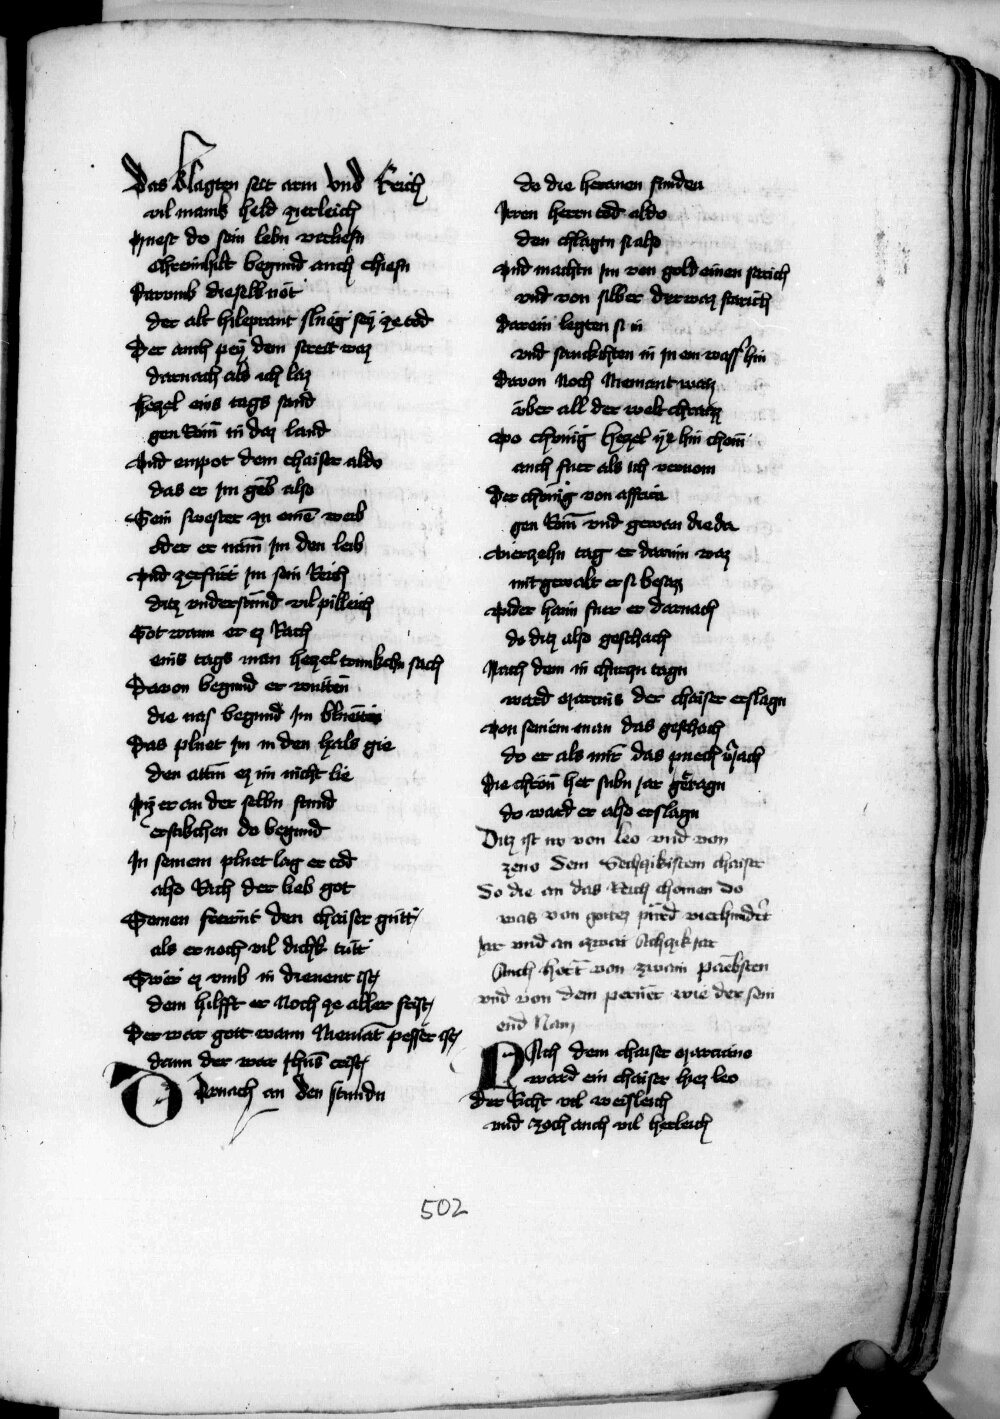 Das klagten seit arm vnd Reich
vil manik held zierleich
Hnest do sein lebn verliesn
Chreimhilt begund auch chiesn
Darumb dieselb not
der alt hileprant slueg sey ze tod
Der auch pey dem streit waz
darnach als ich laz
Hezel eins tags sand
gen Rom in daz land
Vnd enpot dem chaiser aldo
das er Im geb also
Sein swester zu einē weib
oder er nām Im den leib
Vnd zerfurt Im sein Reich
ditz vnderstund vil pilleich
Got wann er ez Rach
eins tags man hezel trunkchn sach
Davon begund er wuttñ
die nas begund Im bluettñ
Das pluet Im in den hals gie
den attm ez im nicht lie
Piz er an der selbn stund
erstikchen do begund
In seinem pluet lag er tod
also Rach der lieb got
Seinen frewnt den chaiser gutt
als er noch vil dichk tutt
Swer ez vmb in dienent ist
dem hilfft er Noch ze aller frist
Der war gott wann Niemāt pesser ist
dann der war Jhūs crist
Darnach an den stundn
do die hewnen funden
Iren herrn tod aldo
den chlagtn si also
Vnd machtn Im von gold einen sarich
vnd von silber der waz starich
Darein legten si in
vnd sanckchten in in ein wasser hin
Davon Noch Niemant waz
über all der welt chraizz
Wo chönig hezel ye hin chom
auch fuer als ich vernom
Der chönig von affrica
gen Rom vnd gewan die da
Vierzehn tag er darinn waz
mit gewalt er si besazz
Wider haim fuer er darnach
do ditz also geschach
Nach dem in churczn tagn
ward Marcius der chaiser erslagn
Von seinem man das geschach
do er als mir das puech veriach
Die chron het subn jar getragn
do ward er also erslagn
Ditz ist nw von leo vnd von
zeno dem Sechzikistem chaiser
So die an das Reich chomen do
was von gotez purd vierhundert
jar vnd an zwai Achzik jar
Auch hort von zwain paebsten
vnd von dem perner wie der sein
end Nam
NAch dem chaiser Marciano
ward ein chaiser hiez leo
Der Richt vil weisleich
vnd zoch auch vil herleich
502